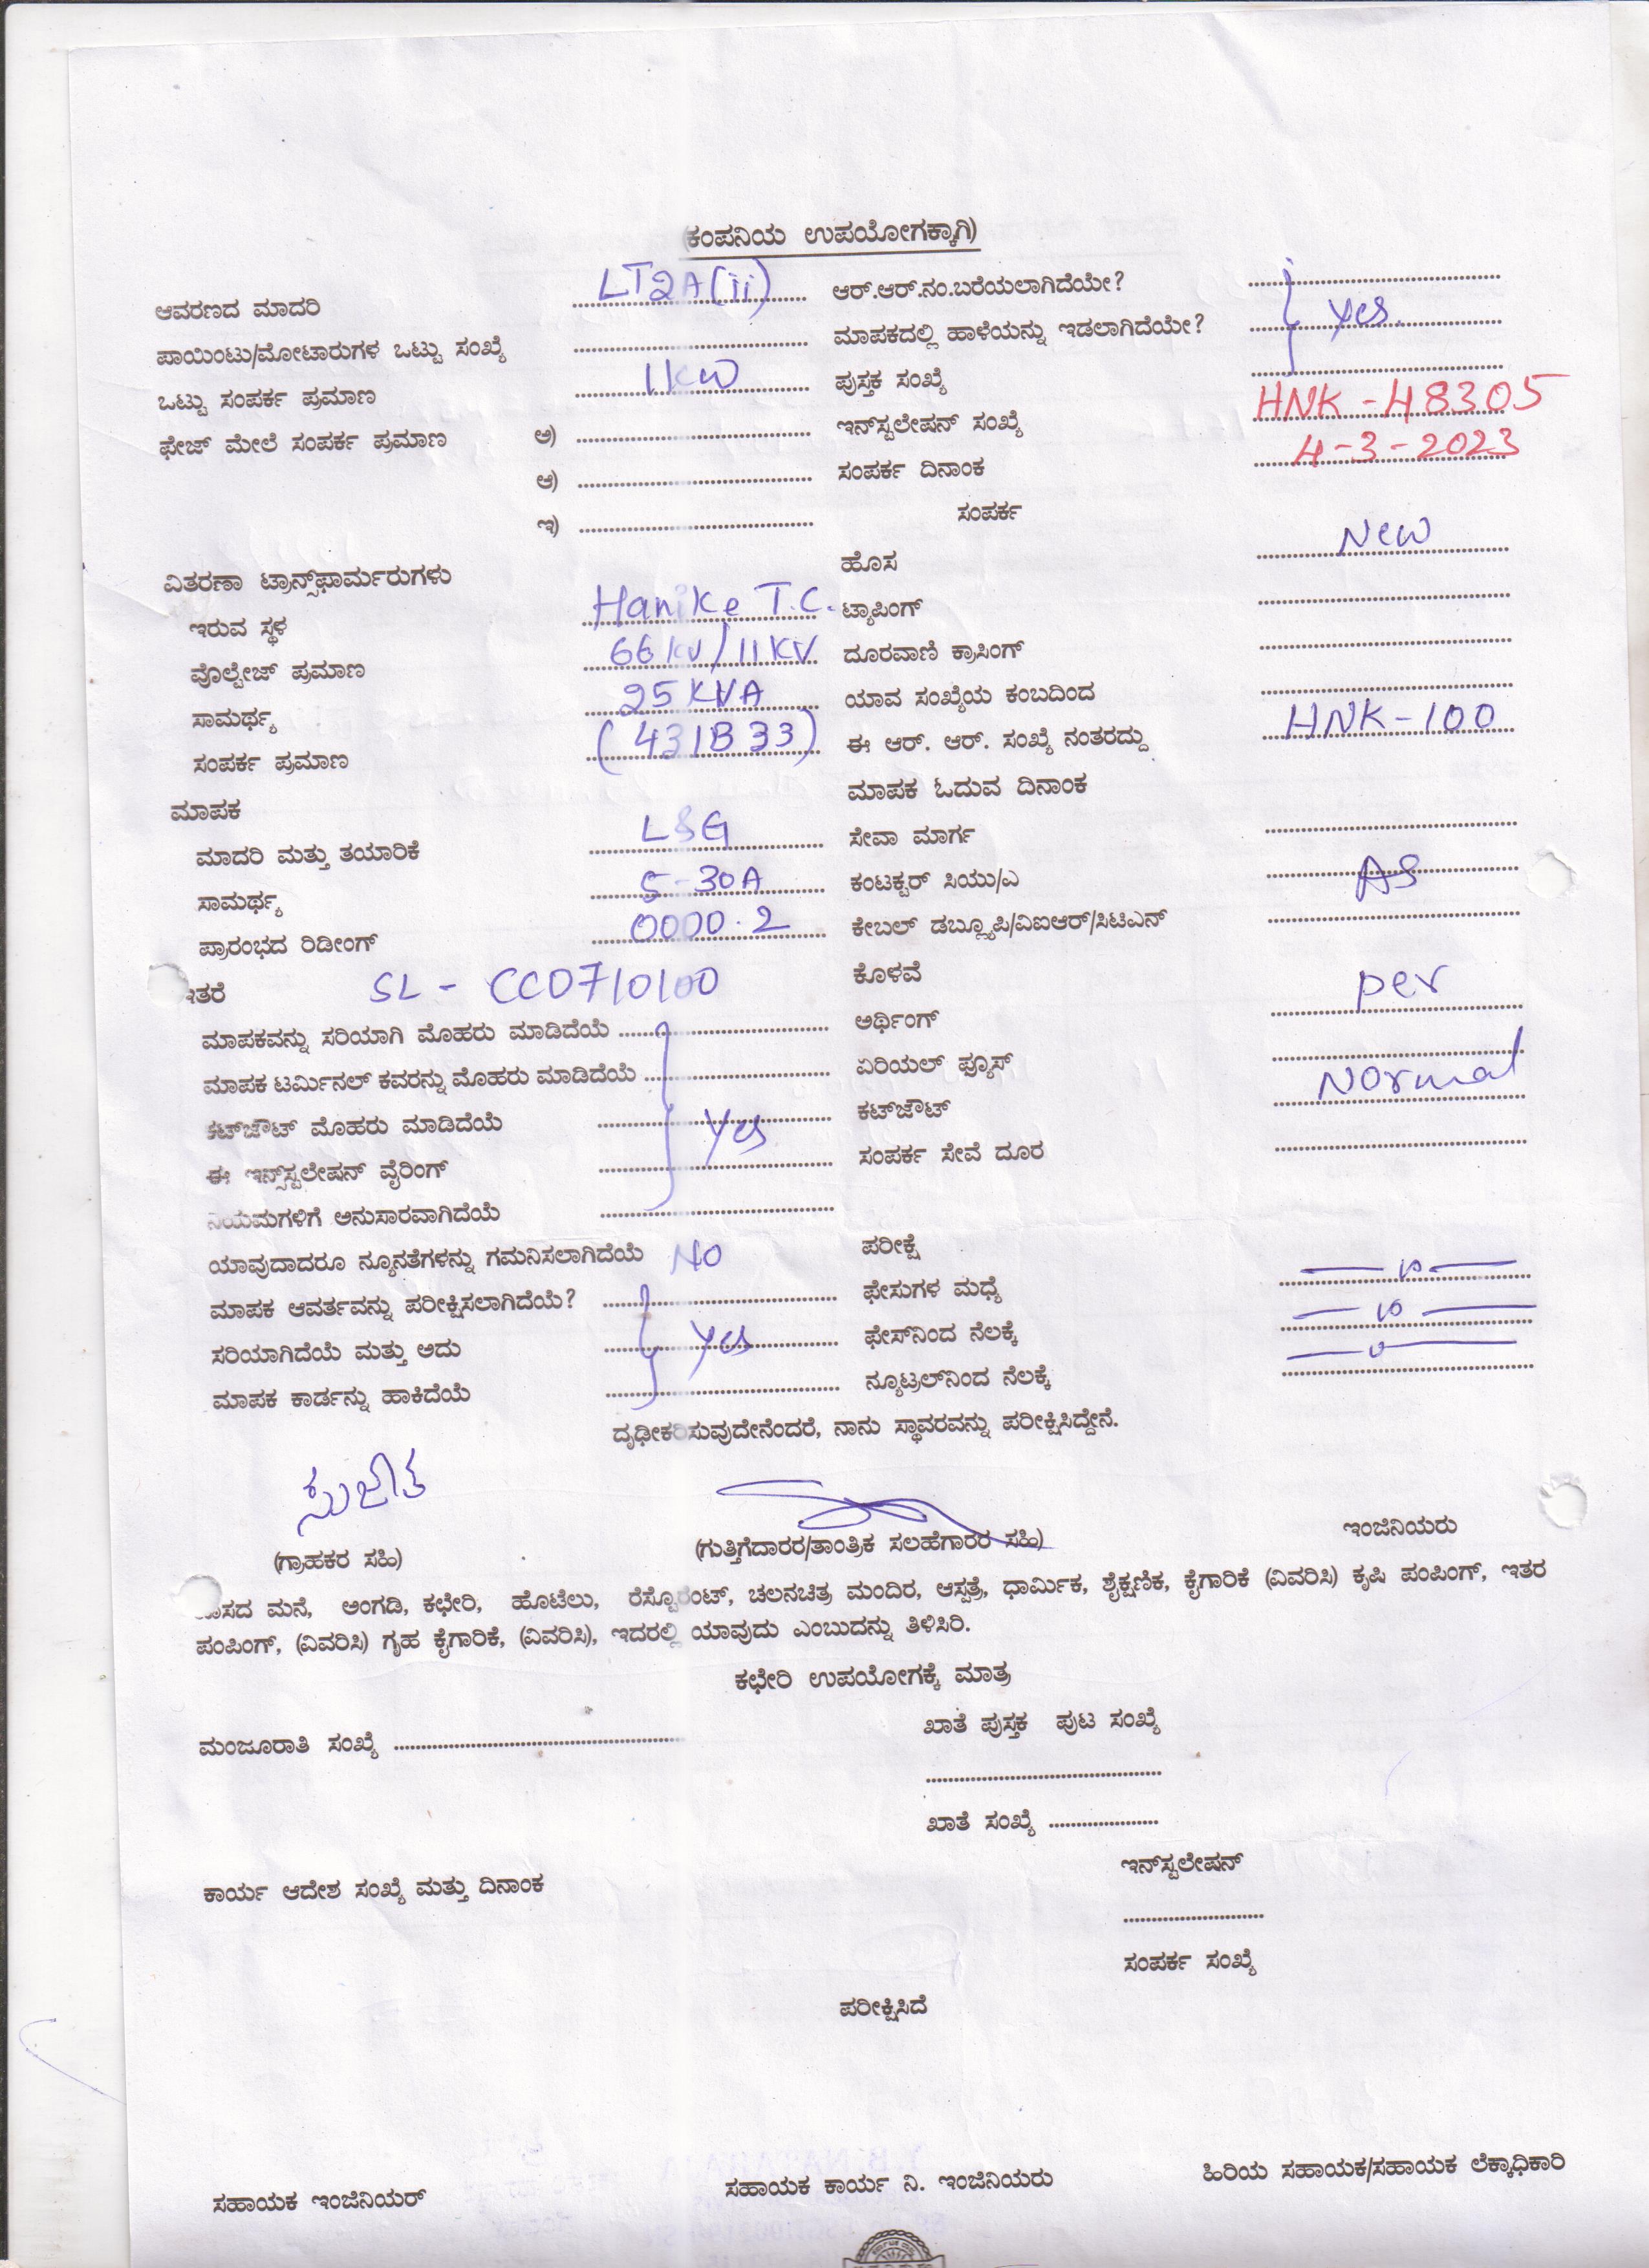 (ಕಂಪನಿಯ ಉಪಯೋಗಕ್ಕಾಗಿ)
ಆವರಣದ ಮಾದರಿ LT2A(ii) ಆರ್.ಆರ್.ನಂ.ಬರೆಯಲಾಗಿದೆಯೇ?
ಪಾಯಿಂಟು/ಮೋಟಾರುಗಳ ಒಟ್ಟು ಸಂಖ್ಯೆ ಮಾಪಕದಲ್ಲಿ ಹಾಳೆಯನ್ನು ಇಡಲಾಗಿದೆಯೇ? Yes.
ಒಟ್ಟು ಸಂಪರ್ಕ ಪ್ರಮಾಣ 1KW ಪುಸ್ತಕ ಸಂಖ್ಯೆ
ಫೇಜ್ ಮೇಲೆ ಸಂಪರ್ಕ ಪ್ರಮಾಣ ಅ) ಇನ್‌ಸ್ಟಲೇಷನ್ ಸಂಖ್ಯೆ HNK-48305
ಆ) ಸಂಪರ್ಕ ದಿನಾಂಕ 4-3-2023
ಇ) ಸಂಪರ್ಕ
ವಿತರಣಾ ಟ್ರಾನ್ಸ್‌ಫಾರ್ಮರುಗಳು ಹೊಸ New
ಇರುವ ಸ್ಥಳ Hanike T.C. ಟ್ಯಾಪಿಂಗ್
ವೊಲ್ಟೇಜ್ ಪ್ರಮಾಣ 66KV/11KV ದೂರವಾಣಿ ಕ್ರಾಸಿಂಗ್
ಸಾಮರ್ಥ್ಯ 25KVA ಯಾವ ಸಂಖ್ಯೆಯ ಕಂಬದಿಂದ
ಸಂಪರ್ಕ ಪ್ರಮಾಣ (431B33) ಈ ಆರ್. ಆರ್. ಸಂಖ್ಯೆ ನಂತರದ್ದು HNK-100
ಮಾಪಕ ಮಾಪಕ ಓದುವ ದಿನಾಂಕ
ಮಾದರಿ ಮತ್ತು ತಯಾರಿಕೆ L&G ಸೇವಾ ಮಾರ್ಗ
ಸಾಮರ್ಥ್ಯ 5-30A ಕಂಟಕ್ಟರ್ ಸಿಯು/ಎ As
ಪ್ರಾರಂಭದ ರಿಡೀಂಗ್ 0000.2 ಕೇಬಲ್ ಡಬ್ಲ್ಯೂಪಿ/ವಿಐಆರ್/ಸಿಟಿಎನ್
ಇತರೆ SL- CC0710100 ಕೊಳವೆ per
ಮಾಪಕವನ್ನು ಸರಿಯಾಗಿ ಮೊಹರು ಮಾಡಿದೆಯೆ ಅರ್ಥಿಂಗ್
ಮಾಪಕ ಟರ್ಮಿನಲ್ ಕವರನ್ನು ಮೊಹರು ಮಾಡಿದೆಯೆ ಏರಿಯಲ್ ಫ್ಯೂಸ್ Normal
ಕಟ್‌ಔಟ್ ಮೊಹರು ಮಾಡಿದೆಯೆ Yes ಕಟ್‌ಔಟ್
ಈ ಇನ್ಸ್‌ಸ್ಟಲೇಷನ್ ವೈರಿಂಗ್ ಸಂಪರ್ಕ ಸೇವೆ ದೂರ
ನಿಯಮಗಳಿಗೆ ಅನುಸಾರವಾಗಿದೆಯೆ
ಯಾವುದಾದರೂ ನ್ಯೂನತೆಗಳನ್ನು ಗಮನಿಸಲಾಗಿದೆಯೆ NO ಪರೀಕ್ಷೆ
ಮಾಪಕ ಆವರ್ತವನ್ನು ಪರೀಕ್ಷಿಸಲಾಗಿದೆಯೆ? ಫೇಸುಗಳ ಮಧ್ಯೆ
ಸರಿಯಾಗಿದೆಯೆ ಮತ್ತು ಅದು Yes ಫೇಸ್‌ನಿಂದ ನೆಲಕ್ಕೆ
ಮಾಪಕ ಕಾರ್ಡನ್ನು ಹಾಕಿದೆಯೆ ನ್ಯೂಟ್ರಲ್‌ನಿಂದ ನೆಲಕ್ಕೆ
ದೃಢೀಕರಿಸುವುದೇನೆಂದರೆ, ನಾನು ಸ್ಥಾವರವನ್ನು ಪರೀಕ್ಷಿಸಿದ್ದೇನೆ.
(ಗ್ರಾಹಕರ ಸಹಿ) (ಗುತ್ತಿಗೆದಾರರ/ತಾಂತ್ರಿಕ ಸಲಹೆಗಾರರ ಸಹಿ) ಇಂಜಿನಿಯರು
ವಾಸದ ಮನೆ, ಅಂಗಡಿ, ಕಛೇರಿ, ಹೊಟೆಲು, ರೆಸ್ಟೊರಂಟ್, ಚಲನಚಿತ್ರ ಮಂದಿರ, ಆಸ್ಪತ್ರೆ, ಧಾರ್ಮಿಕ, ಶೈಕ್ಷಣಿಕ, ಕೈಗಾರಿಕೆ (ವಿವರಿಸಿ) ಕೃಷಿ ಪಂಪಿಂಗ್, ಇತರ
ಪಂಪಿಂಗ್, (ವಿವರಿಸಿ) ಗೃಹ ಕೈಗಾರಿಕೆ, (ವಿವರಿಸಿ), ಇದರಲ್ಲಿ ಯಾವುದು ಎಂಬುದನ್ನು ತಿಳಿಸಿರಿ.
ಕಛೇರಿ ಉಪಯೋಗಕ್ಕೆ ಮಾತ್ರ
ಮಂಜೂರಾತಿ ಸಂಖ್ಯೆ ಖಾತೆ ಪುಸ್ತಕ ಪುಟ ಸಂಖ್ಯೆ
ಖಾತೆ ಸಂಖ್ಯೆ
ಕಾರ್ಯ ಆದೇಶ ಸಂಖ್ಯೆ ಮತ್ತು ದಿನಾಂಕ ಇನ್‌ಸ್ಟಲೇಷನ್
ಸಂಪರ್ಕ ಸಂಖ್ಯೆ
ಪರೀಕ್ಷಿಸಿದೆ
ಸಹಾಯಕ ಇಂಜಿನಿಯರ್ ಸಹಾಯಕ ಕಾರ್ಯ ನಿ. ಇಂಜಿನಿಯರು ಹಿರಿಯ ಸಹಾಯಕ/ಸಹಾಯಕ ಲೆಕ್ಕಾಧಿಕಾರಿ